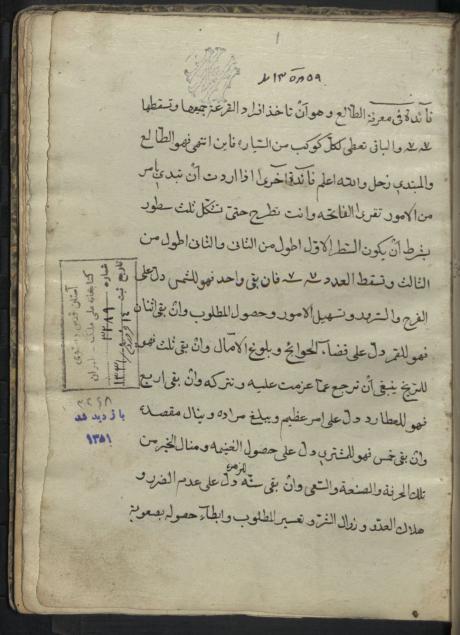 ١
فائدة في معرفة الطالع وهو أن تأخذ افراد القرعة جميعها وتسقطها
٧ ٧ والباقي تعطي لكل كوكب من السيارة فاين انتهى فهو الطالع
والمبتدي زحل والله اعلم فائدة اخرى اذا اردت أن تبدي بأمر
من الأمور تقرئ الفاتحه وانت تطرح حتى تشكل ثلث سطور
بشرط أن يكون السطر الاول اطول من الثاني والثاني اطول من
الثالث وتسقط العدد ٧ ٧ فان بقى واحد فهو للشمس دل على
الفرح والسرور وتسهيل الامور وحصول المطلوب وان بقى اثنان
فهو للقمر دل على قضاء الحوائج وبلوغ الآمال وان بقى ثلث فهو
للمريخ ينبغي أن ترجع عما عزمت عليه وتتركه وان بقى اربع
فهو للعطارد دل على امر عظيم ويبلغ مراده وينال مقصده
وان بقى خمس فهو للمشتري دل على حصول الغنيمه ومنال الخير من
تلك الحرفة والصنعة والسعي وان بقى ستّة للزهرة دل على عدم الضرر و
هلاك العدو وزوال الضر وتعسير المطلوب وابطآء حصوله بصعوبة
آستان قدس رضوی
کتابخانه ملی ملک - تهران
شماره
تاریخ ثبت
بازدید شد
۱۳۵۱